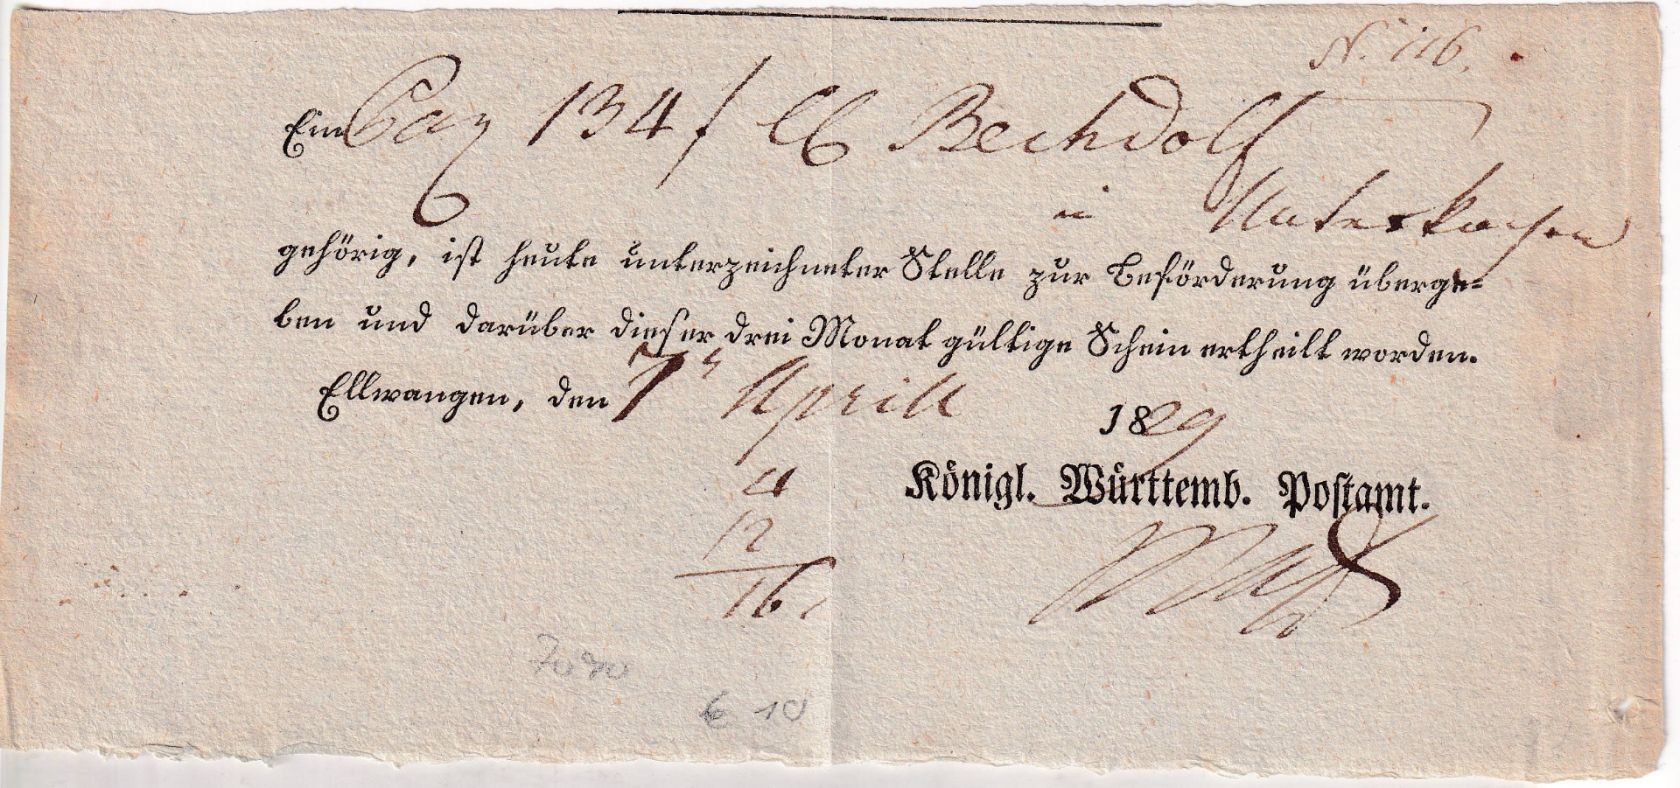 N. 116.
Ein Paq 134 f C6 Bechdolf
in Unterkochen
gehörig, ist heute unterzeichneter Stelle zur Beförderung überge=
ben und darüber dieser drei Monat gültige Schein ertheilt worden.
Ellwangen, den 7 Aprill 1829
Königl. Württemb. Postamt.
4
12
16
€ 10